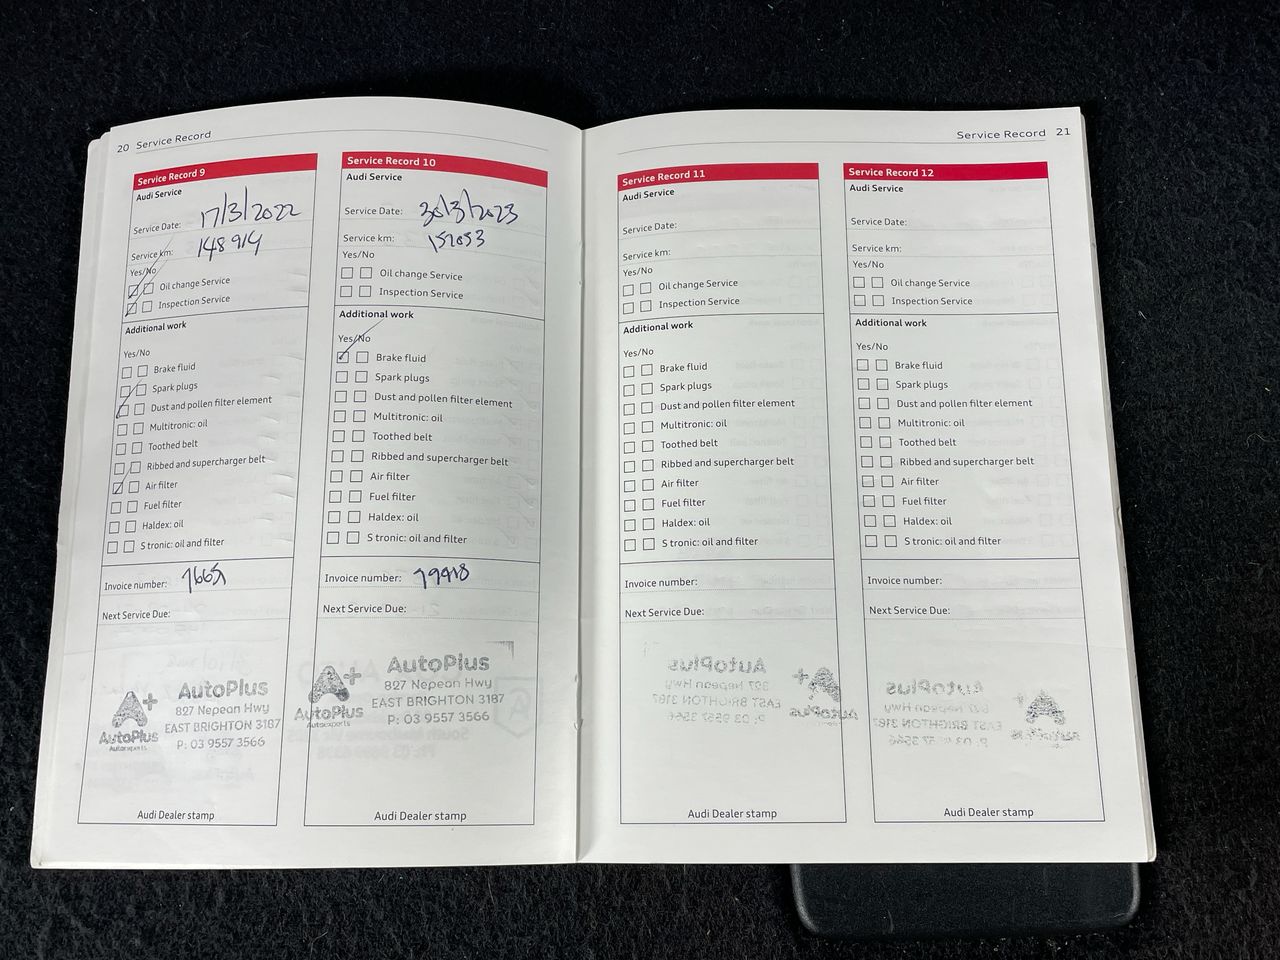 20 Service Record
Service Record 9
Audi Service
Service Date: 17/3/2022
Service km: 148914
Yes/No
Oil change Service
Inspection Service
Additional work
Yes/No
Brake fluid
Spark plugs
Dust and pollen filter element
Multitronic: oil
Toothed belt
Ribbed and supercharger belt
Air filter
Fuel filter
Haldex: oil
S tronic: oil and filter
Invoice number:
Next Service Due:
A+
AutoPlus
Autoexperts
AutoPlus
827 Nepean Hwy
EAST BRIGHTON 3187
P: 03 9557 3566
Audi Dealer stamp
Service Record 10
Audi Service
Service Date: 30/3/2023
Service km: 152053
Yes/No
Oil change Service
Inspection Service
Additional work
Yes/No
Brake fluid
Spark plugs
Dust and pollen filter element
Multitronic: oil
Toothed belt
Ribbed and supercharger belt
Air filter
Fuel filter
Haldex: oil
S tronic: oil and filter
Invoice number:
Next Service Due:
A+
AutoPlus
Autoexperts
AutoPlus
827 Nepean Hwy
EAST BRIGHTON 3187
P: 03 9557 3566
Audi Dealer stamp
Service Record 21
Service Record 11
Audi Service
Service Date:
Service km:
Yes/No
Oil change Service
Inspection Service
Additional work
Yes/No
Brake fluid
Spark plugs
Dust and pollen filter element
Multitronic: oil
Toothed belt
Ribbed and supercharger belt
Air filter
Fuel filter
Haldex: oil
S tronic: oil and filter
Invoice number:
Next Service Due:
AutoPlus
827 Nepean Hwy
EAST BRIGHTON 3187
P: 03 9557 3566
A+
AutoPlus
Audi Dealer stamp
Service Record 12
Audi Service
Service Date:
Service km:
Yes/No
Oil change Service
Inspection Service
Additional work
Yes/No
Brake fluid
Spark plugs
Dust and pollen filter element
Multitronic: oil
Toothed belt
Ribbed and supercharger belt
Air filter
Fuel filter
Haldex: oil
S tronic: oil and filter
Invoice number:
Next Service Due:
AutoPlus
827 Nepean Hwy
EAST BRIGHTON 3187
P: 03 9557 3566
A+
Audi Dealer stamp